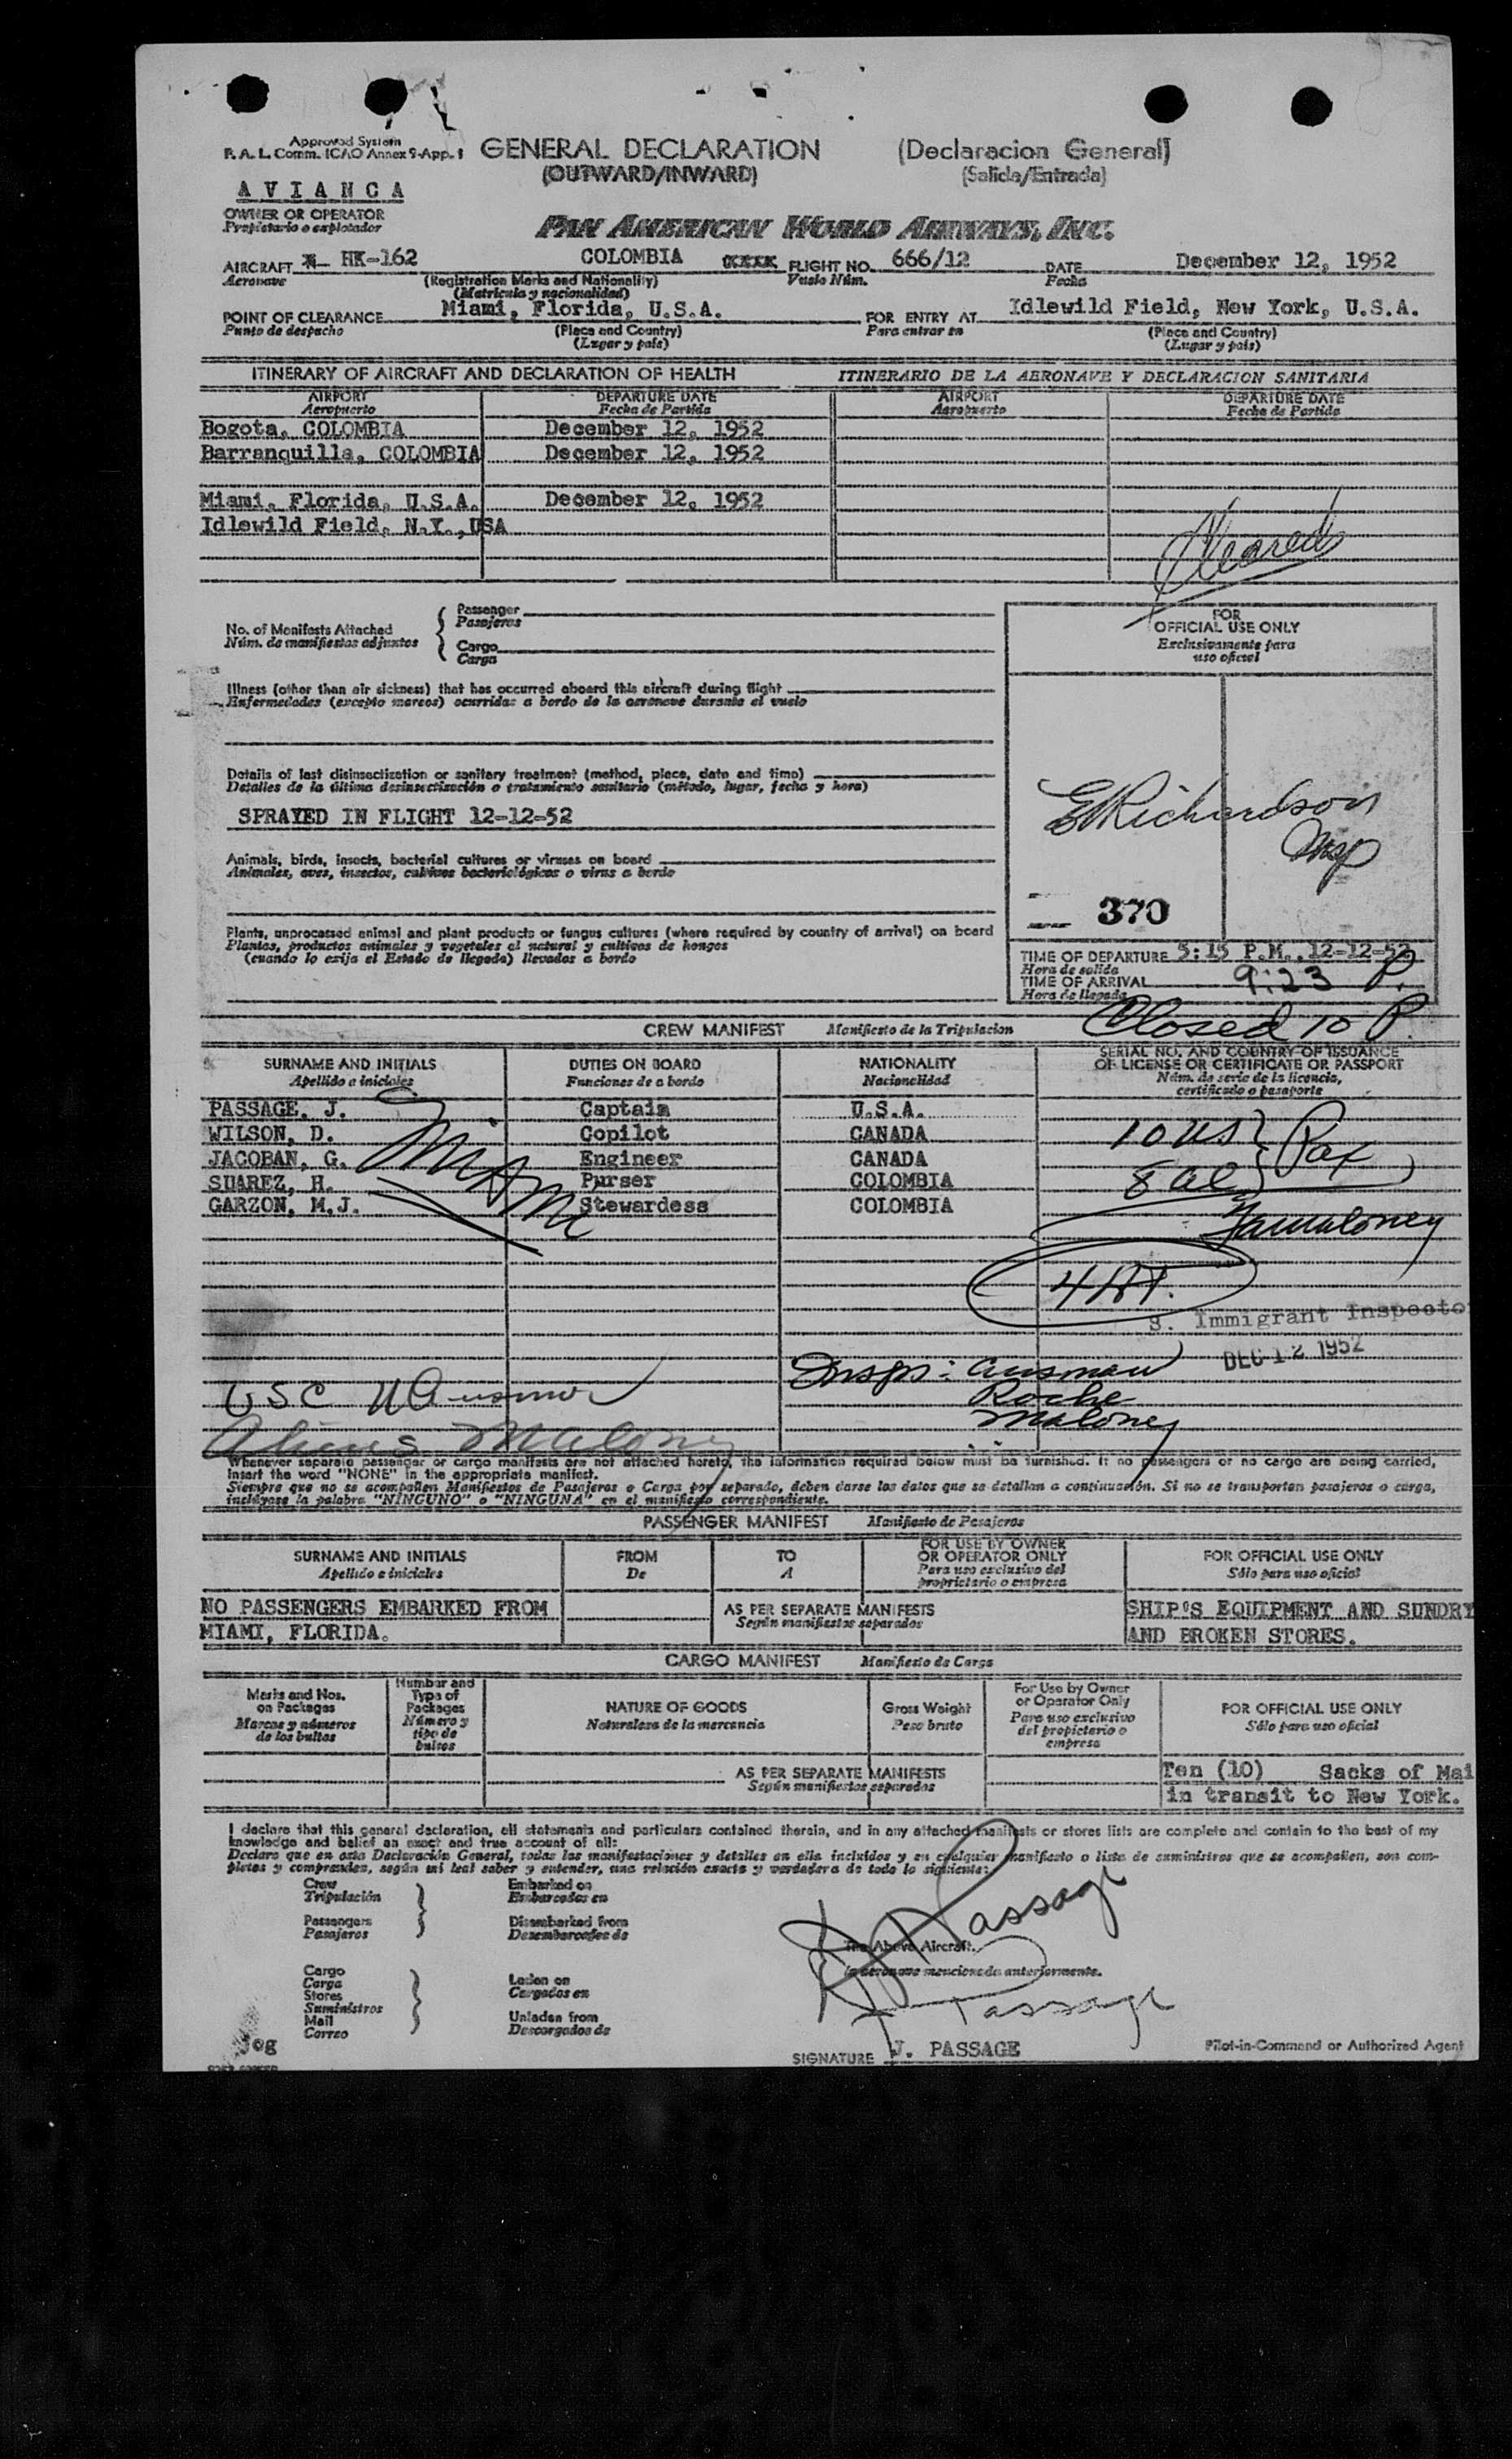 Approved System
F. A. L. Comm. ICAO Annex 9-App. 1
GENERAL DECLARATION (Declaracion General)
(OUTWARD/INWARD) (Salida/Entrada)
AVIANCA
OWNER OR OPERATOR
Propietario o explotador
PAN AMERICAN WORLD AIRWAYS, INC.
AIRCRAFT HK-162 COLOMBIA FLIGHT NO. 666/12 DATE December 12, 1952
Aeronave (Registration Marks and Nationality) Vuelo Núm. Fecha
(Matricula y nacionalidad)
POINT OF CLEARANCE Miami, Florida, U.S.A. FOR ENTRY AT Idlewild Field, New York, U.S.A.
Punto de despacho (Place and Country) Para entrar en (Place and Country)
(Lugar y país) (Lugar y país)
ITINERARY OF AIRCRAFT AND DECLARATION OF HEALTH ITINERARIO DE LA AERONAVE Y DECLARACION SANITARIA
AIRPORT DEPARTURE DATE AIRPORT DEPARTURE DATE
Aeropuerto Fecha de Partida Aeropuerto Fecha de Partida
Bogota, COLOMBIA December 12, 1952
Barranquilla, COLOMBIA December 12, 1952
Miami, Florida, U.S.A. December 12, 1952
Idlewild Field, N.Y.,USA
Cleared
No. of Manifests Attached
Núm. de manifiestos adjuntos
Passenger
Pasajeros
Cargo
Carga
FOR
OFFICIAL USE ONLY
Exclusivamente para
uso oficial
Illness (other than air sickness) that has occurred aboard this aircraft during flight
Enfermedades (excepto mareos) ocurridas a bordo de la aeronave durante el vuelo
Details of last disinsectization or sanitary treatment (method, place, date and time)
Detalles de la última desinsectización o tratamiento sanitario (método, lugar, fecha y hora)
SPRAYED IN FLIGHT 12-12-52
E Richardson
Insp
Animals, birds, insects, bacterial cultures or viruses on board
Animales, aves, insectos, cultivos bacteriológicos o virus a bordo
370
Plants, unprocessed animal and plant products or fungus cultures (where required by country of arrival) on board
Plantas, productos animales y vegetales al natural y cultivos de hongos
(cuando lo exija el Estado de llegada) llevados a bordo
TIME OF DEPARTURE 5:15 P.M. 12-12-52
Hora de salida
TIME OF ARRIVAL 9:23 P.
Hora de llegada
Closed 10 P.
CREW MANIFEST Manifiesto de la Tripulacion
SURNAME AND INITIALS DUTIES ON BOARD NATIONALITY SERIAL NO. AND COUNTRY OF ISSUANCE
OF LICENSE OR CERTIFICATE OR PASSPORT
Apellido e iniciales Funciones de a bordo Nacionalidad Núm. de serie de la licencia,
certificado o pasaporte
PASSAGE, J. Captain U.S.A.
WILSON, D. Copilot CANADA 10 US
JACOBAN, G. Engineer CANADA Pax
SUAREZ, H. Purser COLOMBIA 8 al
GARZON, M.J. Stewardess COLOMBIA
Maloney
S. Immigrant Inspector
DEC 12 1952
Insps: Ausman
Roche
Maloney
USC Ausman
Aliens Maloney
Whenever separate passenger or cargo manifests are not attached hereto, the information required below must be furnished. If no passengers or no cargo are being carried,
insert the word "NONE" in the appropriate manifest.
Siempre que no se acompañen Manifiestos de Pasajeros o Carga por separado, deben darse los datos que se detallan a continuación. Si no se transportan pasajeros o carga,
inclúyase la palabra "NINGUNO" o "NINGUNA" en el manifiesto correspondiente.
PASSENGER MANIFEST Manifiesto de Pasajeros
SURNAME AND INITIALS FROM TO FOR USE BY OWNER
OR OPERATOR ONLY FOR OFFICIAL USE ONLY
Apellido e iniciales De A Para uso exclusivo del
propietario o empresa Sólo para uso oficial
NO PASSENGERS EMBARKED FROM AS PER SEPARATE MANIFESTS SHIP'S EQUIPMENT AND SUNDRY
MIAMI, FLORIDA. Según manifiestos separados AND BROKEN STORES.
CARGO MANIFEST Manifiesto de Carga
Marks and Nos.
on Packages
Marcas y números
de los bultos
Number and
Type of
Packages
Número y
tipo de
bultos
NATURE OF GOODS
Naturaleza de la mercancia
Gross Weight
Peso bruto
For Use by Owner
or Operator Only
Para uso exclusivo
del propietario o
empresa
FOR OFFICIAL USE ONLY
Sólo para uso oficial
AS PER SEPARATE MANIFESTS Ten (10) Sacks of Mai
Según manifiestos separados in transit to New York.
I declare that this general declaration, all statements and particulars contained therein, and in any attached manifests or stores lists are complete and contain to the best of my
knowledge and belief an exact and true account of all:
Declaro que en esta Declaración General, todas las manifestaciones y detalles en ella incluidos y en cualquier manifiesto o lista de suministros que se acompañen, son com-
pletos y comprenden, según mi leal saber y entender, una relación exacta y verdadera de todo lo siguiente:
Crew
Tripulación
Passengers
Pasajeros
Embarked on
Embarcados en
Disembarked from
Desembarcados de
J Passage
The Above Aircraft.
la aeronave mencionada anteriormente.
Cargo
Carga
Stores
Suministros
Mail
Correo
Laden on
Cargados en
Unladen from
Descargados de
J Passage
jog
SIGNATURE J. PASSAGE Pilot-in-Command or Authorized Agent